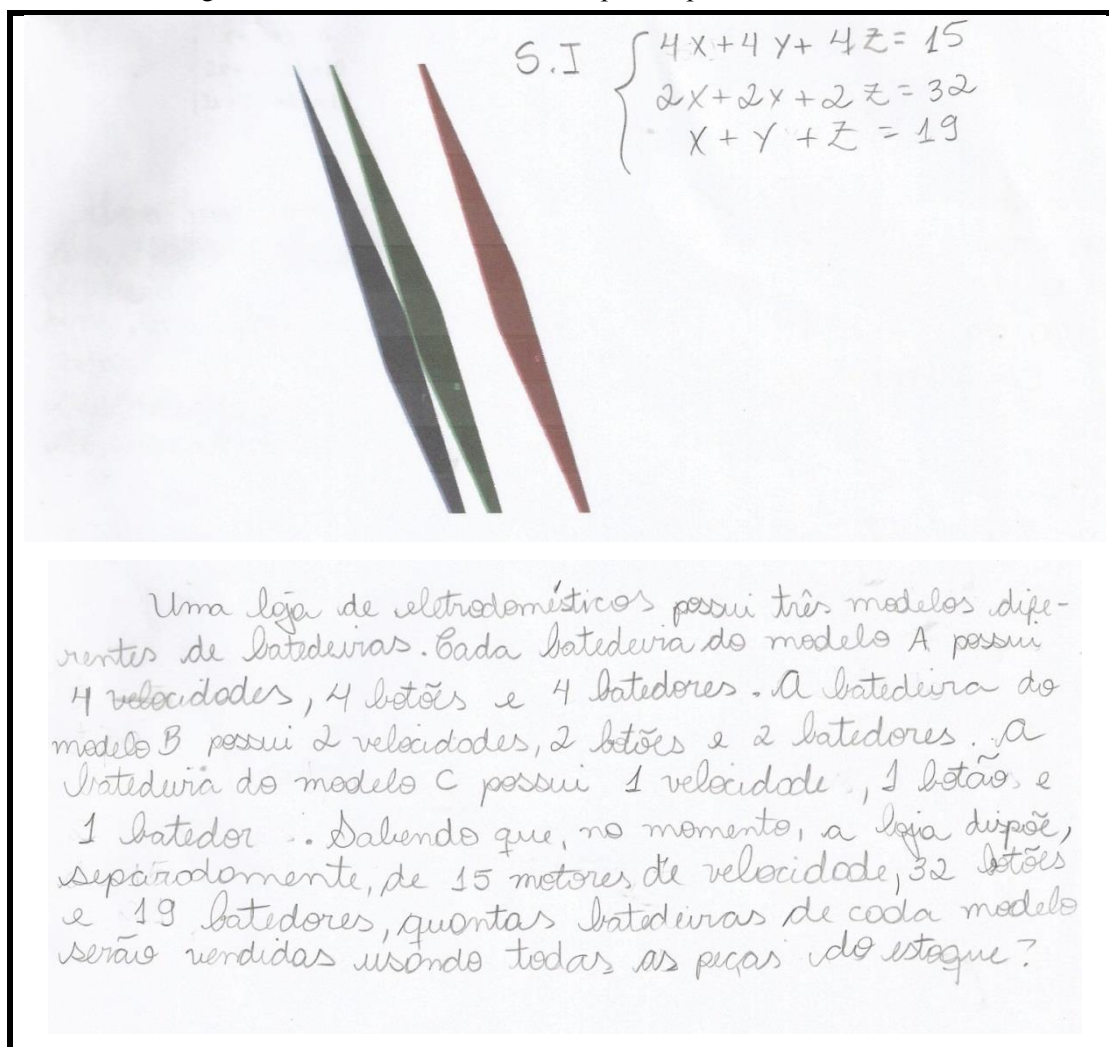 S.I { 4x+4y+4z=15
2x+2x+2z=32
x+y+z=19
Uma loja de eletrodomésticos possui três modelos dife-
rentes de batedeiras. Cada batedeira do modelo A possui
4 velocidades, 4 botões e 4 batedores. A batedeira do
modelo B possui 2 velocidades, 2 botões e 2 batedores. A
batedeira do modelo C possui 1 velocidade, 1 botão, e
1 batedor. Sabendo que, no momento, a loja dispõe,
separadamente, de 15 motores de velocidade, 32 botões
e 19 batedores, quantas batedeiras de cada modelo
serão vendidas usando todas as peças do estoque?